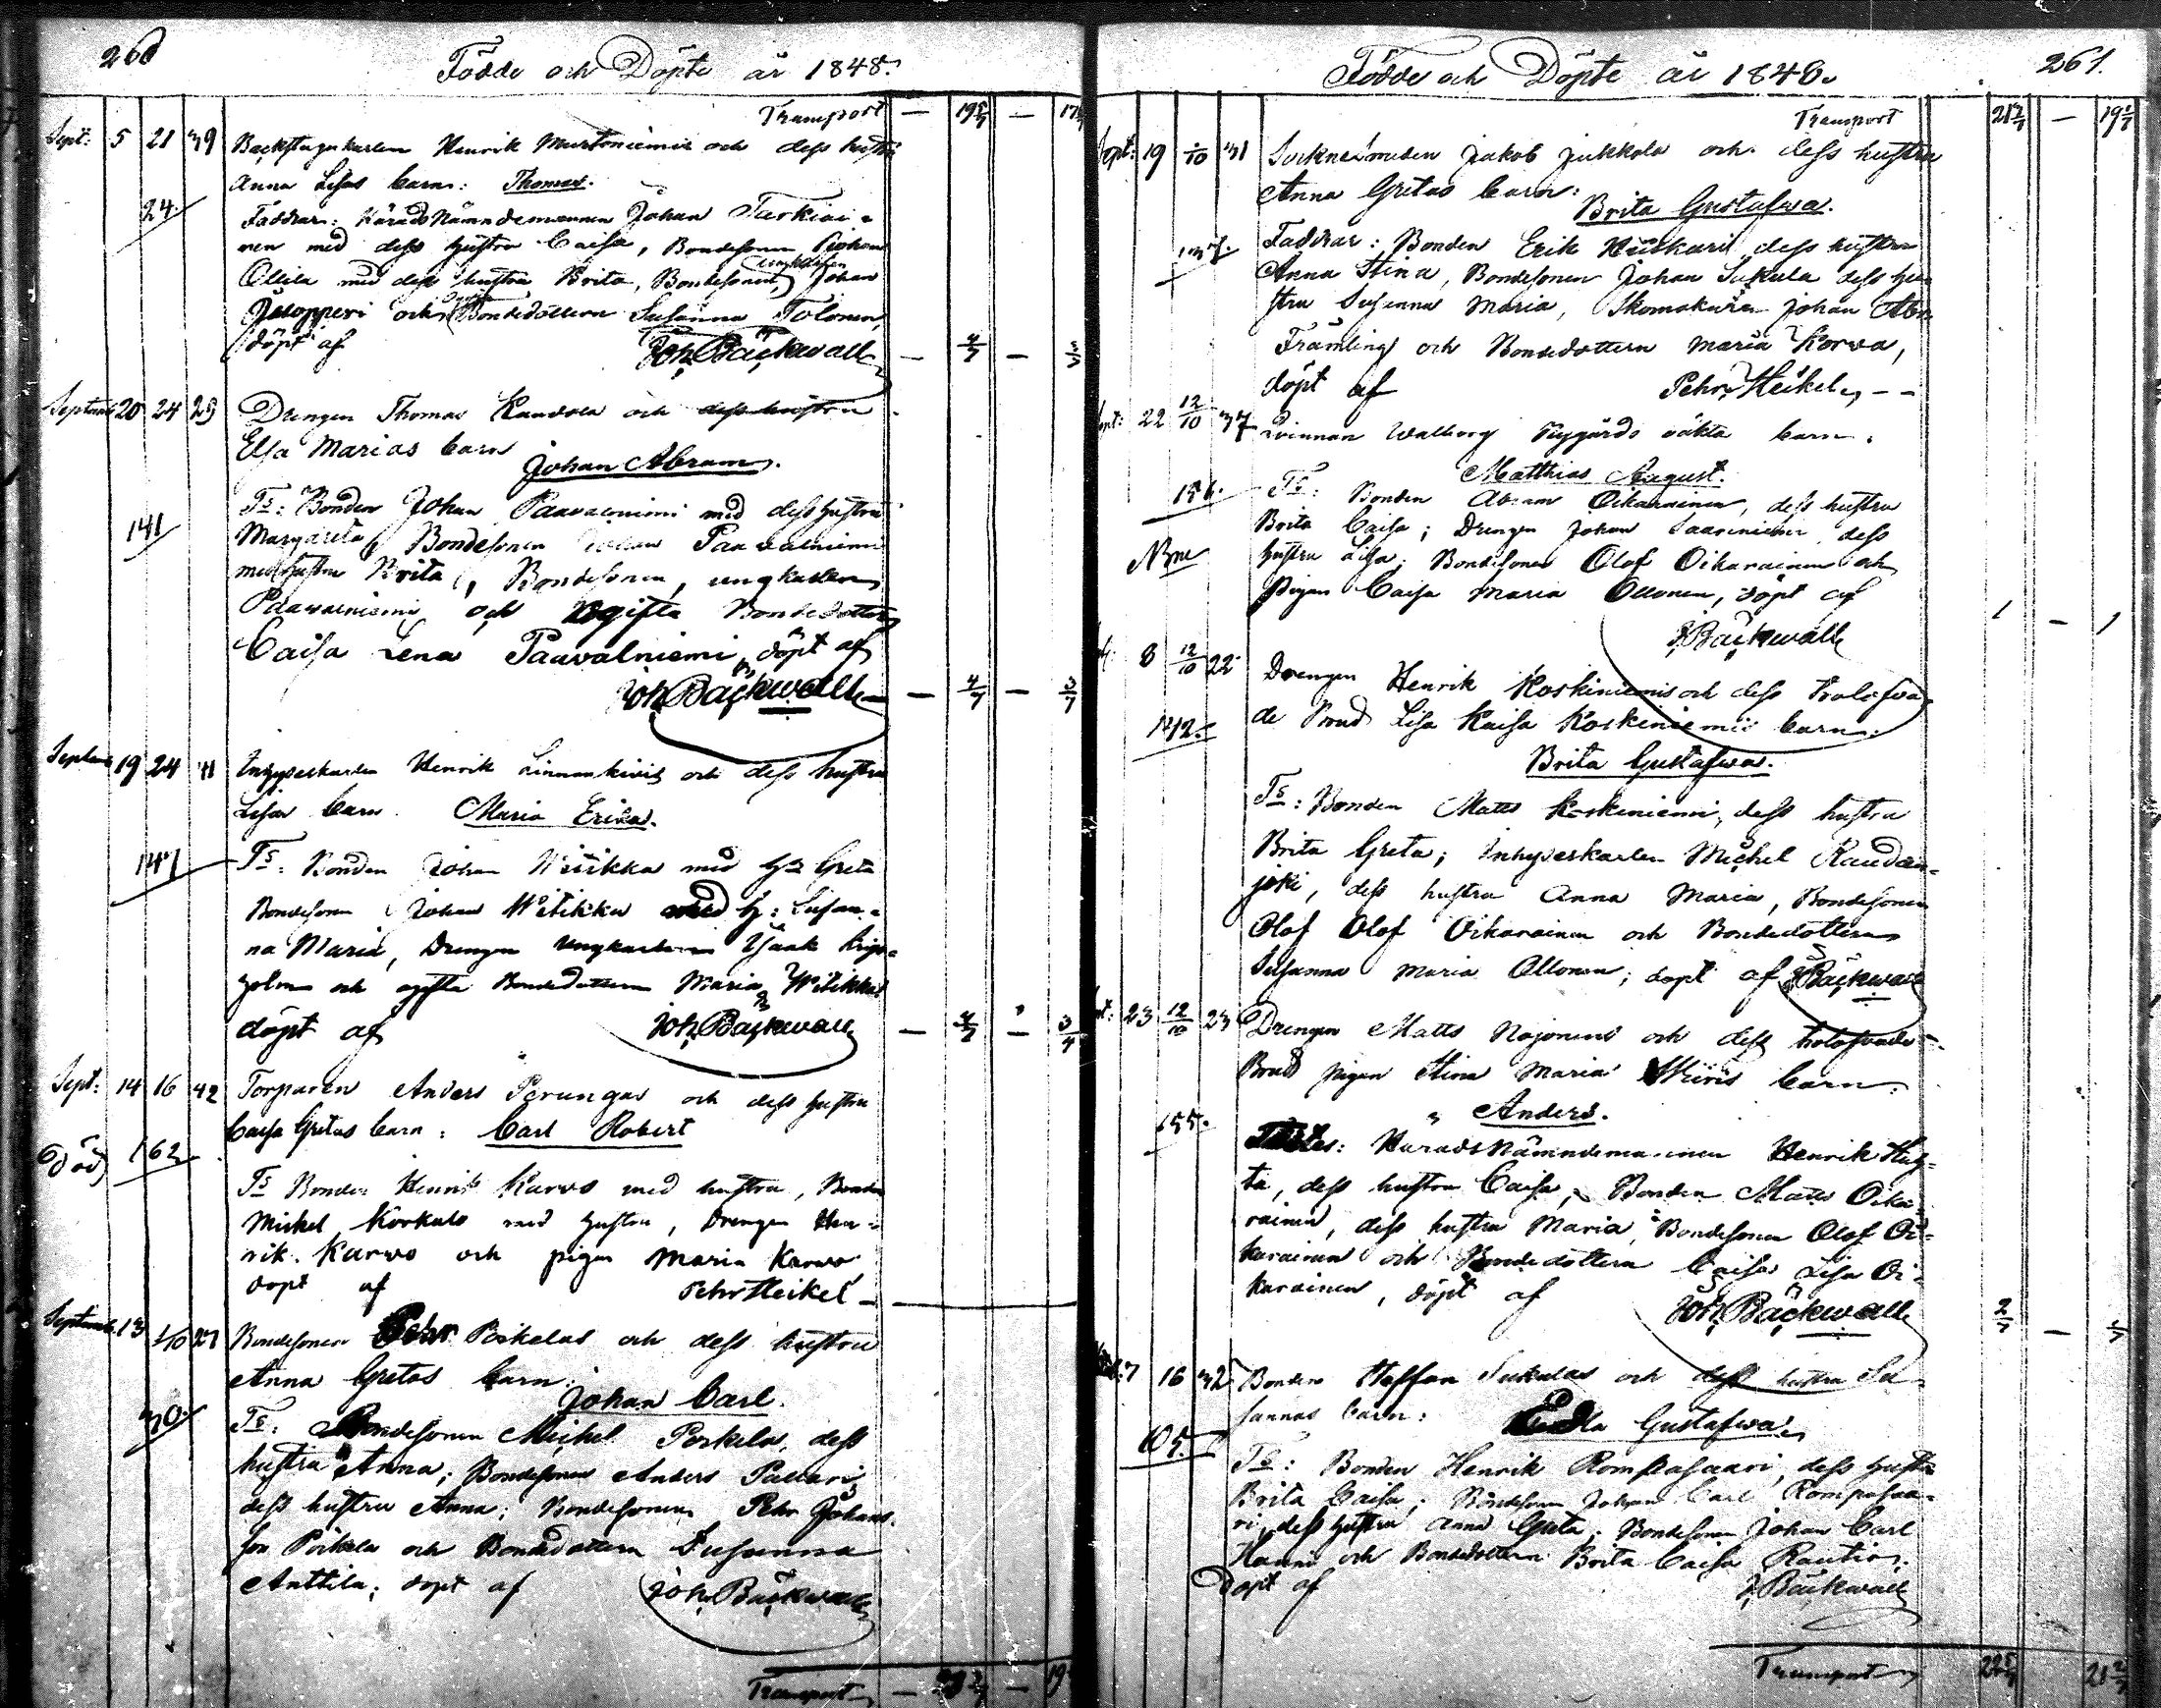 260
Födde och Döpte år 1848.
Transport — 19 5/7 — 17
Sept: 5 21 39 Backstugukarlen Henrik Murtoniemis och dess hustru
Anna Lisas barn: Thomas.
24. Faddrar: Härads Nämndemannen Johan Tarkiai-
nen med dess hustru Caisa, Bondesonen Johan
Ollila med dess hustru Brita, Bondesonen, ungkarlen Johan
och Bondedottern Susanna Tolonen,
döpt af Joh. Bäckwall — 4/7 — 3/7
Septemb 20 24 29 Drengen Thomas Kandola och dess hustru
Elsa Marias barn
Johan Abram.
141 Ts: Bonden Johan Paavalniemi med dess hustru
Margareta, Bondesonen Johan Paavalniemi
med hustru Brita, Bondesonen, ungkarlen
Paavalniemi och ogifta Bondedottern
Caisa Lena Paavalniemi, döpt af
Joh. Bäckwall — 4/7 — 3/7
Septemb 19 24 41 Inhyseskarlen Henrik Linnankivis och dess hustru
Lisas barn. Maria Erika.
147 Ts: Bonden Johan Witikka med H: Greta
Bondesonen Johan Witikka med H: Susan-
na Maria, Drengen Ungkarlen Isaak
och ogifta Bondedottern Maria Witikka
döpt af Joh. Bäckwall — 4/7 — 3/7
Sept: 14 16 42 Torparen Anders Perungas och dess hustru
Caisa Gretas barn: Carl Robert
död 162
Ts Bonden Henrik Karvo med hustru, Bonden
Mickel Korkalo med hustru, Drengen Hen-
rik Karvo och pigan Maria Karvo
döpt af Pehr Heikel —
Septemb 13 1/10 27 Bondesonen Pehr Poikelas och dess hustru
Anna Gretas barn:
Johan Carl.
30. Ts: Bondesonen Michel Poikela, dess
hustru Anna; Bondesonen Anders Pallari,
dess hustru Anna; Bondesonen Pehr Johans-
son Poikela och Bondedottern Susanna
Anttila; döpt af Joh. Bäckwall
Transport — 21 2/7 — 19
Födde och Döpte år 1848.
261.
Transport 21 2/7 — 19 2/7
Sept: 19 1/10 31 Socknesmeden Jakob Jukkola och dess hustru
Anna Gretas barn:
Brita Gustafwa.
137. Faddrar: Bonden Erik Hiiskari dess hustru
Anna Stina, Bondesonen Johan Sukula dess hu-
stru Susanna Maria, Skomakaren Johan Abr.
Främling och Bondedottern Maria Korva,
döpt af Pehr Heikel, - -
Sept: 22 12/10 37 Qvinnan Walborg Nygårds oäkta barn.
Matthias August.
156. Ts: Bonden Abram Oikarainen, dess hustru
Brita Caisa; Drengen Johan Saariniemi dess
hustru Lisa; Bondesonen Olof Oikarainen och
Pigan Caisa Maria Ollonen, döpt af
J. Bäckwall 1 — 1
8 12/10 22 Drengen Henrik Koskiniemis och dess trolofva-
142. de Brud Lisa Kaisa Koskiniemis barn.
Brita Gustafwa.
Ts: Bonden Matts Koskiniemi, dess hustru
Brita Greta; Inhyseskarlen Michel Raudan-
joki, dess hustru Anna Maria, Bondesonen
Olof Olof Oikarainen och Bondedottern
Susanna Maria Ollonen; döpt af J. Bäckwall
23 12/10 23 Drengen Matts Nojonens och dess trolofvade
Brud pigan Stina Maria barn:
Anders.
155. Härads Nämndemannen Henrik
ta, dess hustru Caisa, Bonden Matts Oika-
rainen, dess hustru Maria, Bondesonen Olof Oi-
karainen och Bondedottern Caisa Lisa Oi-
karainen, döpt af Joh. Bäckwall 2/7 —
7 16 32 Bonden Steffan Sukulas och dess hustru Su-
sannas barn: Edla Gustafwa.
105. Ts: Bonden Henrik Rompasaari, dess hustru
Brita Caisa; Bondesonen Johan Carl Rompasaa-
ri, dess hustru Anna Greta; Bondesonen Johan Carl
Hannu och Bondedottern Brita Caisa Rautio.
döpt af J. Bäckwall
Transport 22 5/7 21 2/7